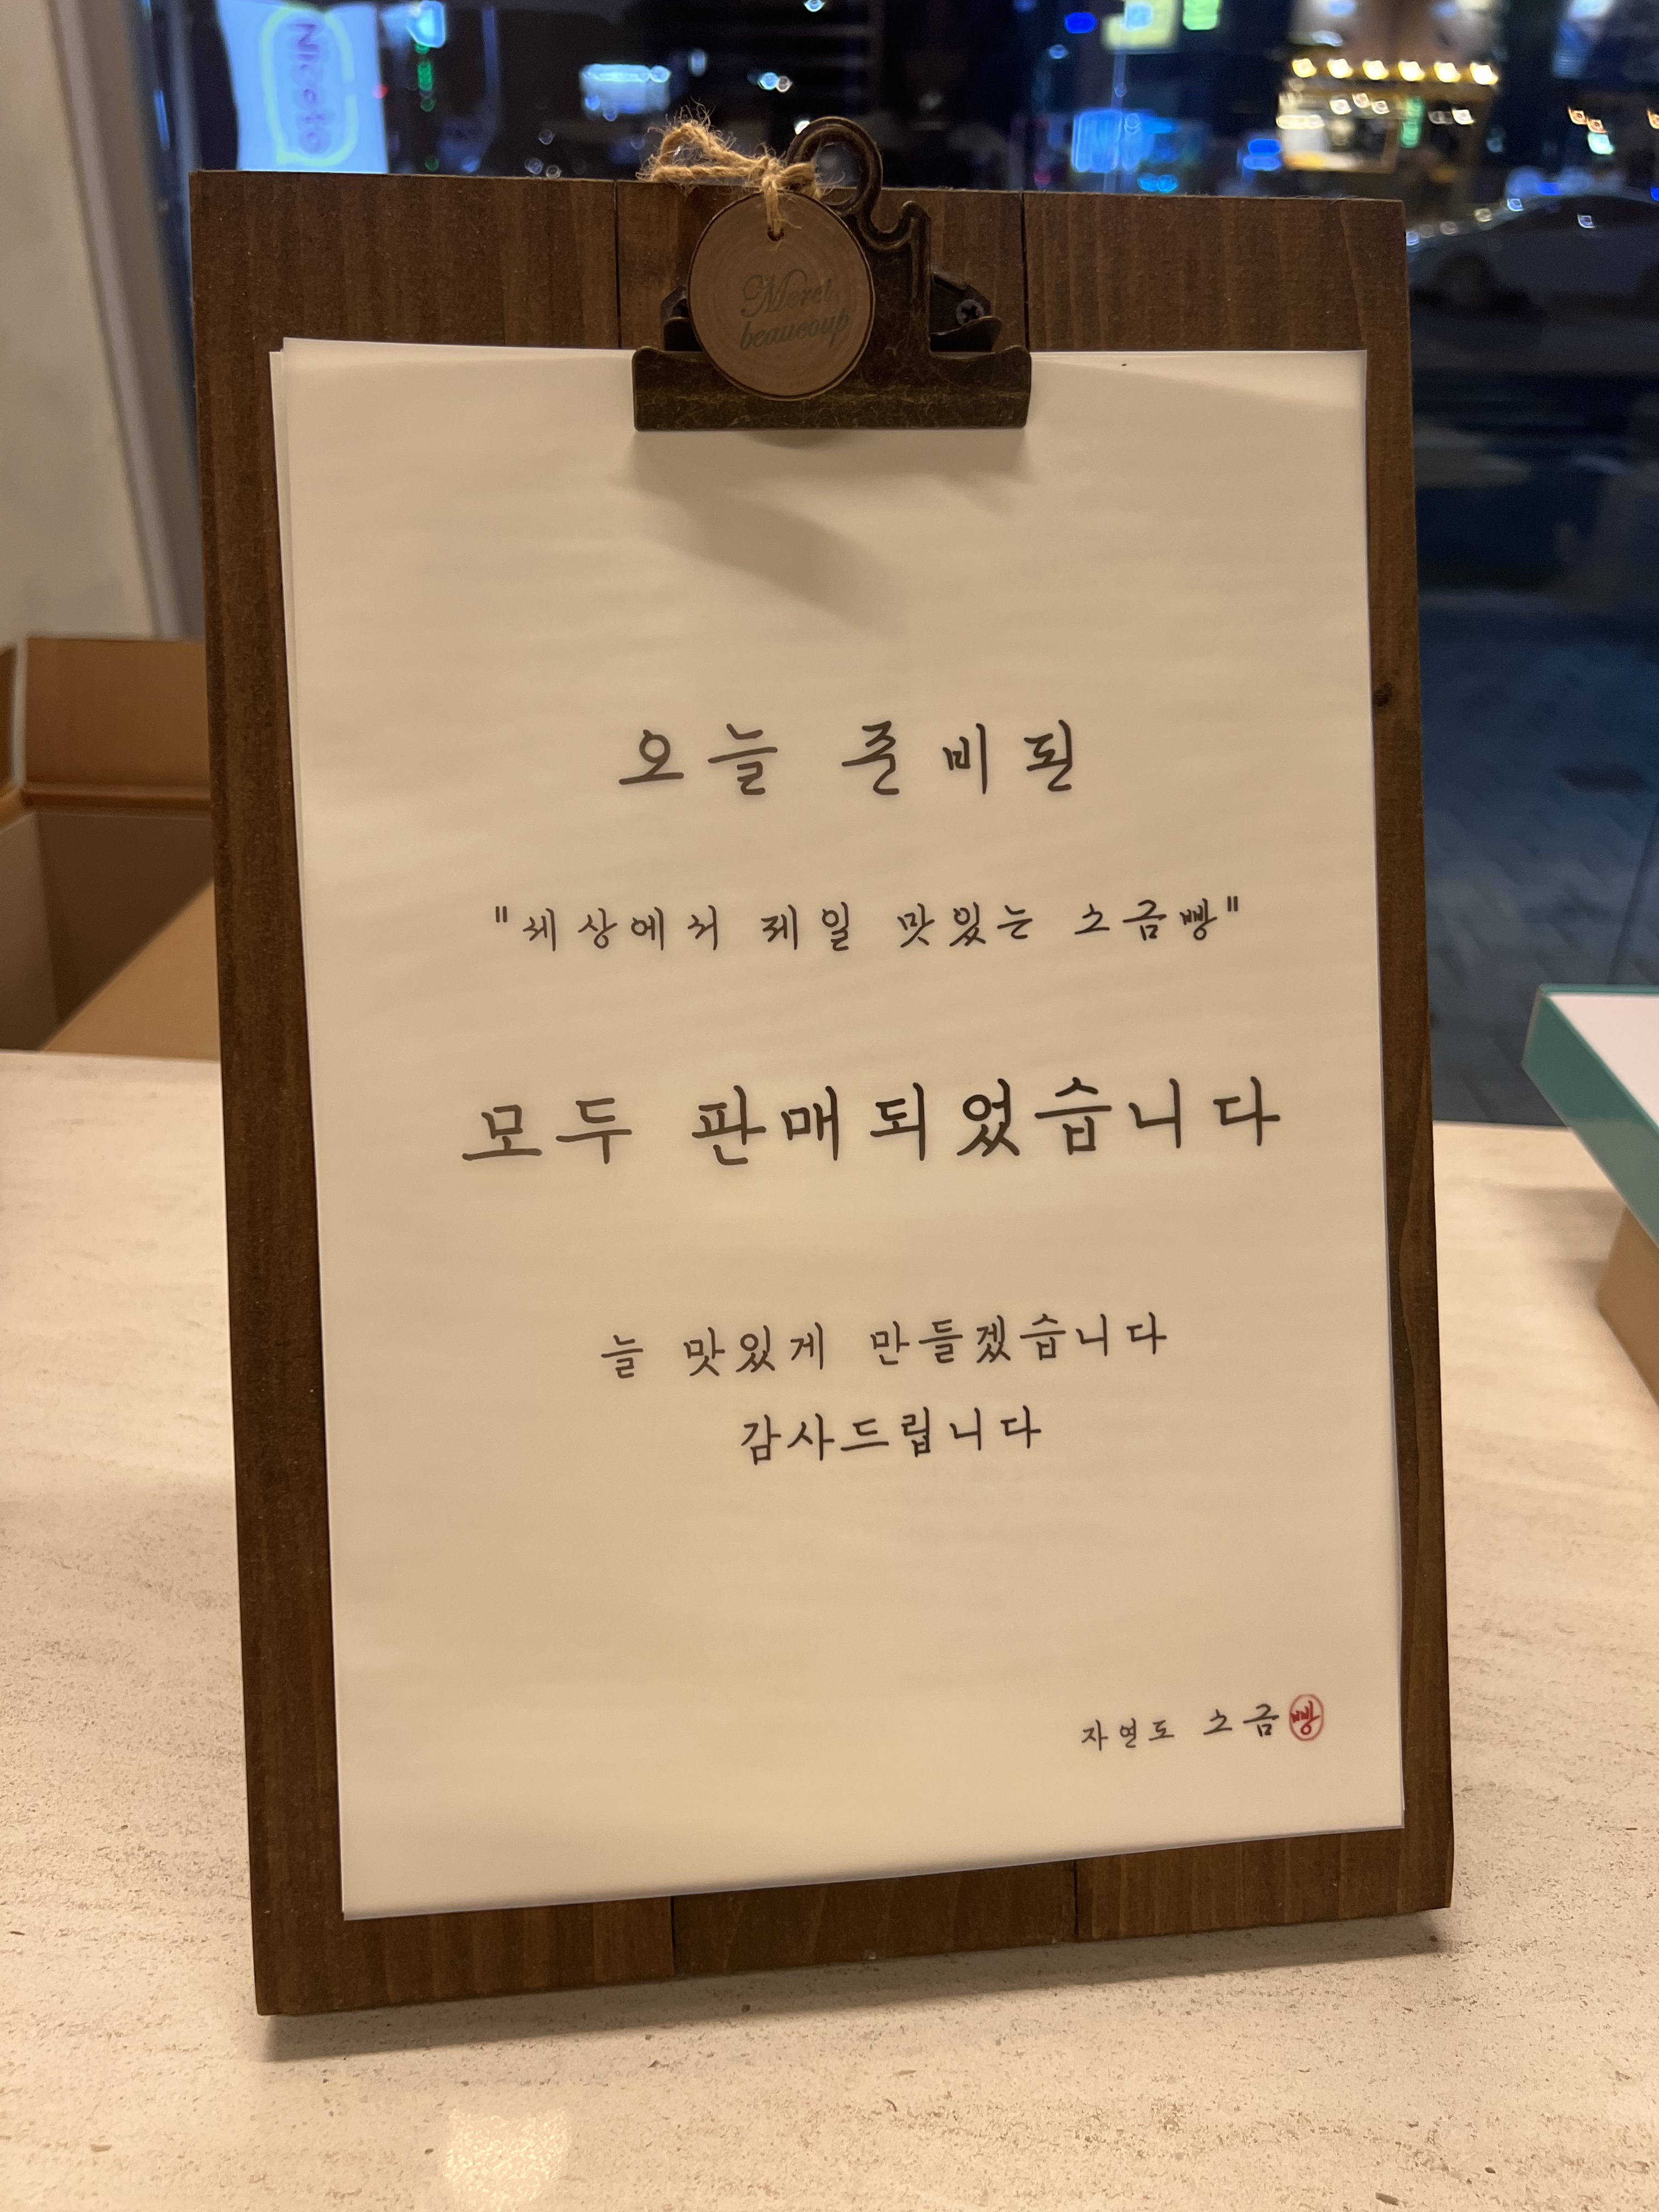 Merci
beaucoup
오늘 준비된
"세상에서 제일 맛있는 소금빵"
모두 판매되었습니다
늘 맛있게 만들겠습니다
감사드립니다
자연도 소금빵